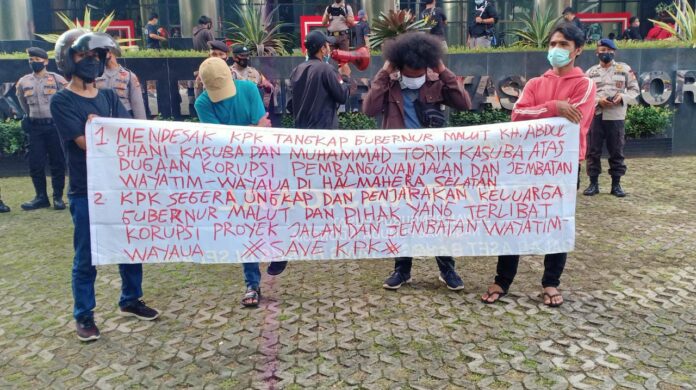 1. MENDESAK KPK TANGKAP GUBERNUR MALUT KH. ABDUL
GHANI KASUBA DAN MUHAMMAD TORIK KASUBA ATAS
DUGAAN KORUPSI PEMBANGUNAN JALAN DAN JEMBATAN
WAYATIM-WAYAUA DI HALMAHERA SELATAN
2. KPK SEGERA UNGKAP DAN PENJARAKAN KELUARGA
GUBERNUR MALUT DAN PIHAK YANG TERLIBAT
KORUPSI PROYEK JALAN DAN JEMBATAN WAYATIM
WAYAUA #SAVE KPK#